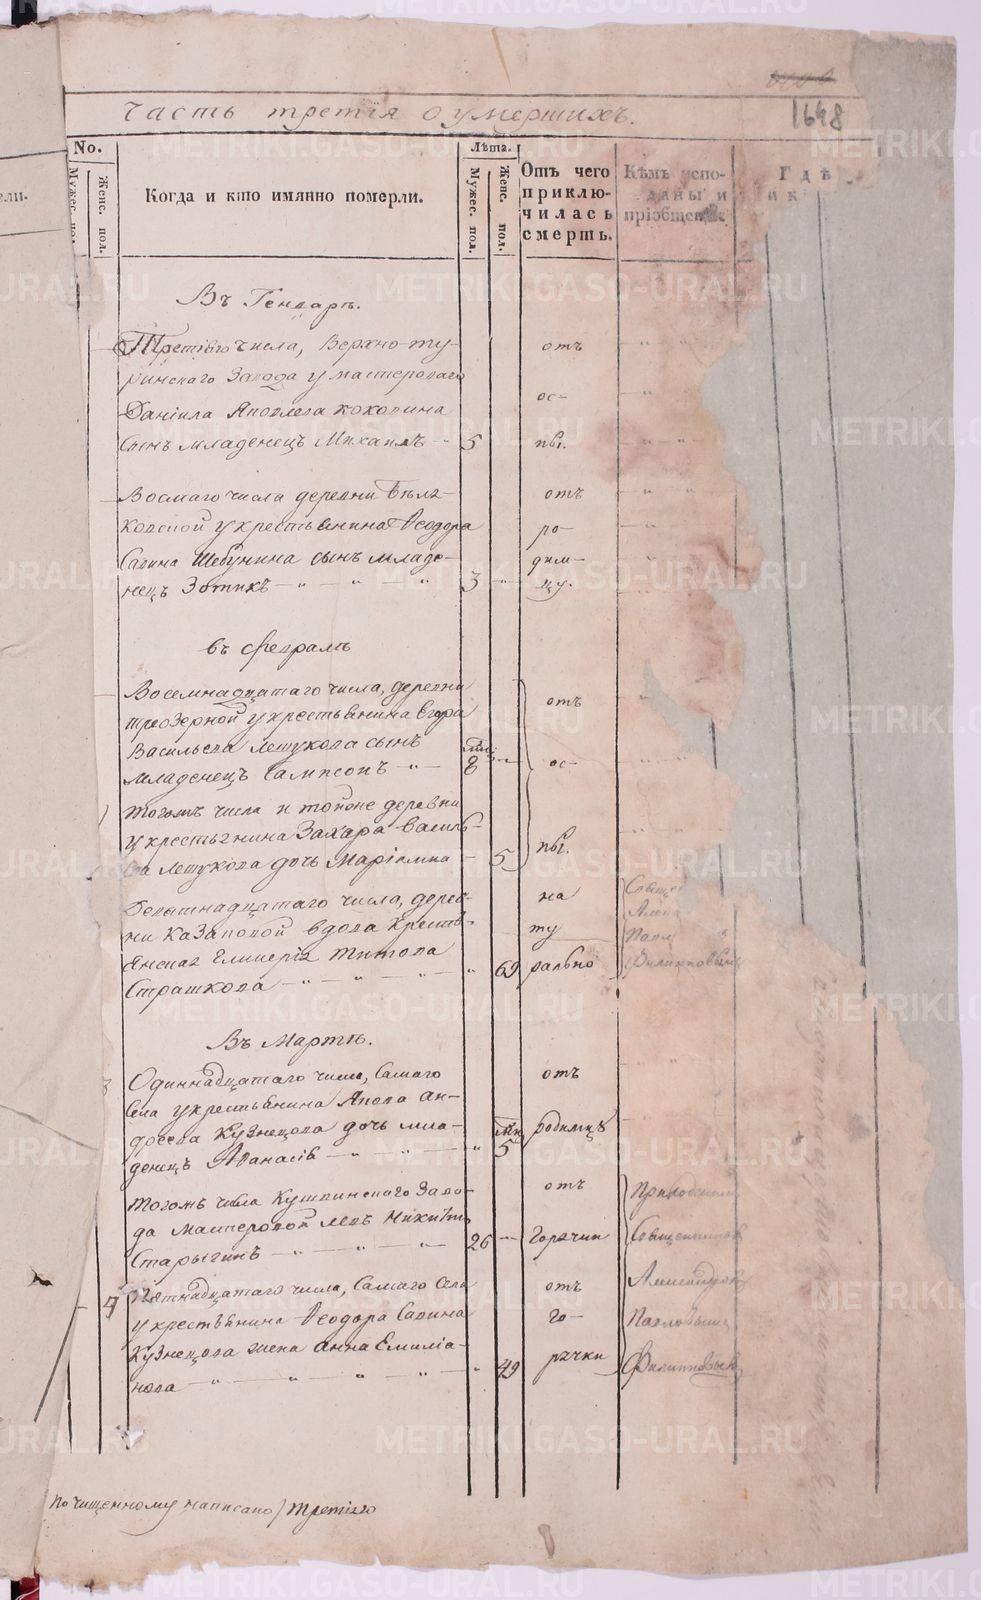 1648
Часть третія о умершихъ.
No.
Мужес. пол.
Женс. пол.
Когда и кто имянно померли.
Лѣта.
Мужес. пол.
Женс. пол.
Отъ чего приклю-чилась смерть.
Кѣмъ испо-
даны и
пріобщены
Гдѣ
и к
ели.
Въ Генварѣ.
Третіяго числа, Верхно-ту-
ринскаго Завода у мастероваго
Даніила Яковлева Коковина
сынъ младенецъ Михаилъ 5
отъ
ос-
пы.
Восмаго числа деревни Бѣла-
ковской у крестьянина Ѳеодора
Савина Шебунина сынъ младе-
нецъ Зотикъ 3
отъ
ро-
дим-
цу.
въ Февралѣ
Восемнадцатаго числа, деревни
треозерной у крестьянина Егора
Васильева Летукова сынъ
младенецъ Сампсонъ 8
отъ
ос-
пы.
тогожъ числа и тойже деревни
у крестьянина Захара Василь-
ева Летукова дочь Маріамна 5
Девятнадцатаго числа, дерев-
ни Казаковой вдова крестья-
янская Гликерія Титова
Страшкова 69
на
ту
рально
Филипповымъ
Въ Мартѣ.
Одиннадцатаго числа, Самаго
Села у крестьянина Якова Ан-
дреева Кузнецова дочь мла-
денецъ Аѳанасія 5
отъ
родимцъ
тогожъ числа Кушвинскаго Заво-
да мастеровой Левъ Никитинъ
Старыгинъ 26
отъ
Горячки
Приходскимъ
Священникомъ
Пятнадцатаго числа, Самаго Села
у крестьянина Ѳеодора Савина
Кузнецова жена Анна Емиліа-
нова 49
отъ
го-
рячки
Александромъ
Павловымъ
Филипповымъ
По чищенному написано / третіяго
METRIKI.GASO-URAL.RU